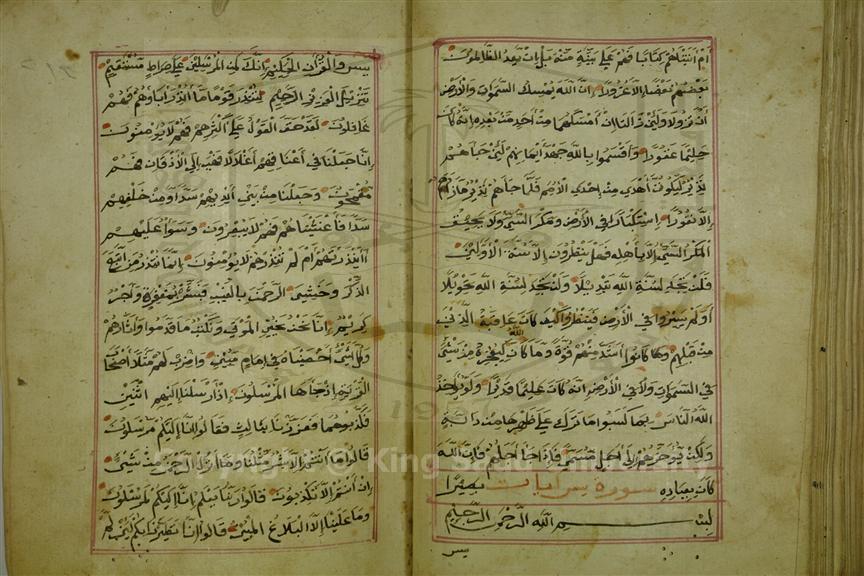 أم أتيناهم كتابا فهم على بينة منه بل إن يعد الظالمون
بعضهم بعضا إلا غرورا إن الله يمسك السموات والأرض
أن تزولا ولئن زالتا إن أمسكهما من أحد من بعده إنه كان
حليما غفورا وأقسموا بالله جهد أيمانهم لئن جاءهم
نذير ليكونن أهدى من إحدى الأمم فلما جاءهم نذير ما زادهم
إلا نفورا استكبارا في الأرض ومكر السيئ ولا يحيق
المكر السيئ إلا بأهله فهل ينظرون إلا سنة الأولين
فلن تجد لسنة الله تبديلا ولن تجد لسنة الله تحويلا
أولم يسيروا في الأرض فينظروا كيف كان عاقبة الذين
من قبلهم وكانوا أشد منهم قوة وما كان الله ليعجزه من شيء
في السموات ولا في الأرض إنه كان عليما قديرا ولو يؤاخذ
الله الناس بما كسبوا ما ترك على ظهرها من دابة
ولكن يؤخرهم إلى أجل مسمى فإذا جاء أجلهم فإن الله
كان بعباده بصيرا سورة يس
بسم الله الرحمن الرحيم
يس
يس والقرآن الحكيم إنك لمن المرسلين على صراط مستقيم
تنزيل العزيز الرحيم لتنذر قوما ما أنذر آباؤهم فهم
غافلون لقد حق القول على أكثرهم فهم لا يؤمنون
إنا جعلنا في أعناقهم أغلالا فهي إلى الأذقان فهم
مقمحون وجعلنا من بين أيديهم سدا ومن خلفهم
سدا فأغشيناهم فهم لا يبصرون وسواء عليهم
أأنذرتهم أم لم تنذرهم لا يؤمنون إنما تنذر من اتبع
الذكر وخشي الرحمن بالغيب فبشره بمغفرة وأجر
كريم إنا نحن نحيي الموتى ونكتب ما قدموا وآثارهم
وكل شيء أحصيناه في إمام مبين واضرب لهم مثلا أصحاب
القرية إذ جاءها المرسلون إذ أرسلنا إليهم اثنين
فكذبوهما فعززنا بثالث فقالوا إنا إليكم مرسلون
قالوا ما أنتم إلا بشر مثلنا وما أنزل الرحمن من شيء
إن أنتم إلا تكذبون قالوا ربنا يعلم إنا إليكم لمرسلون
وما علينا إلا البلاغ المبين قالوا إنا تطيرنا بكم لئن لم
Copyright © King Saud University